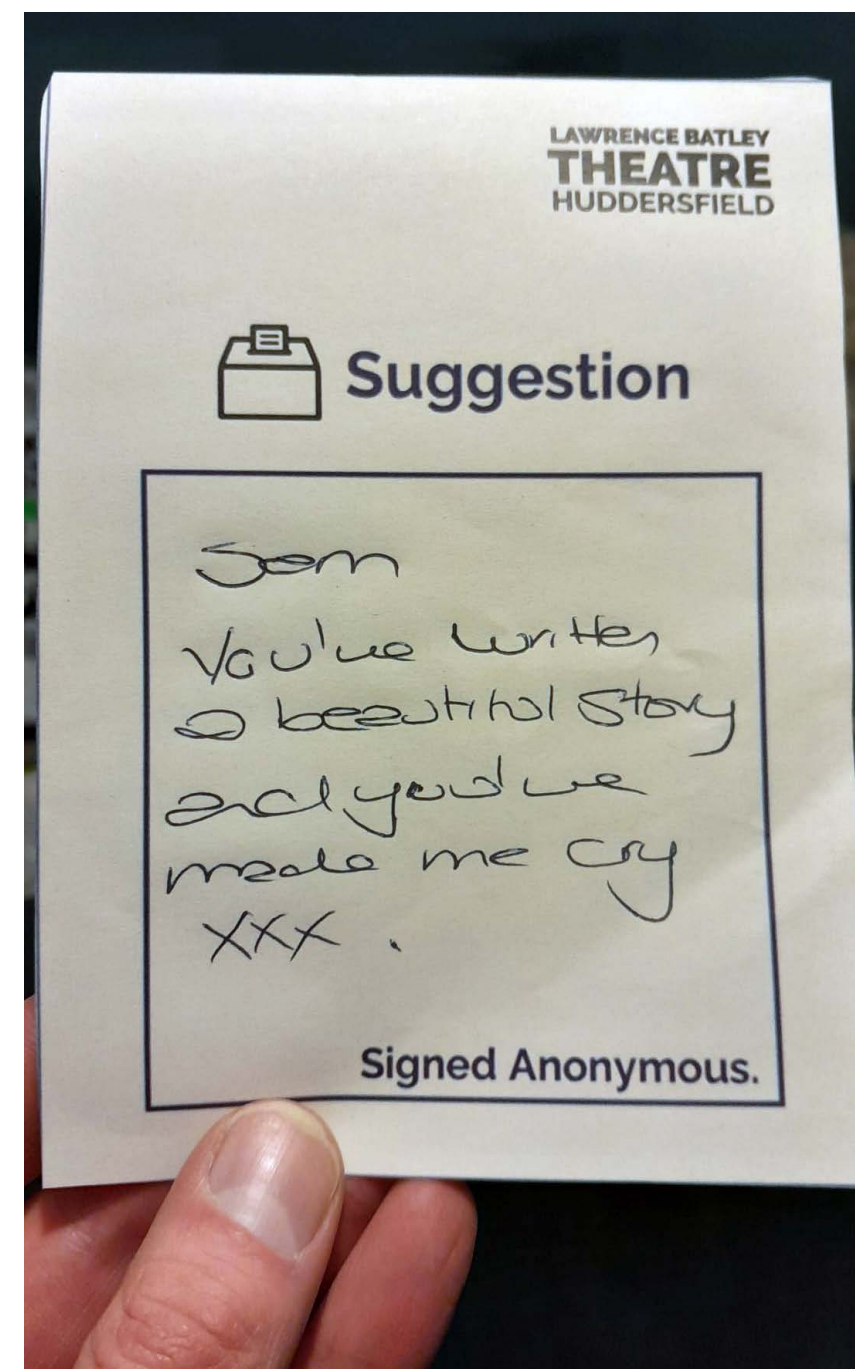 LAWRENCE BATLEY
THEATRE
HUDDERSFIELD
Suggestion
Sam
You've written
a beautiful story
and you've
made me cry
xxx.
Signed Anonymous.